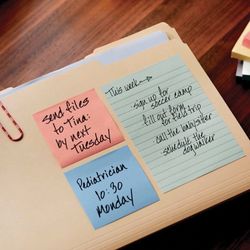 send files
to Tina:
by next
Tuesday
This week→
sign up for
soccer camp
fill out form
for field trip
call the babysitter
schedule the
dog walker
Pediatrician
10:30
Monday